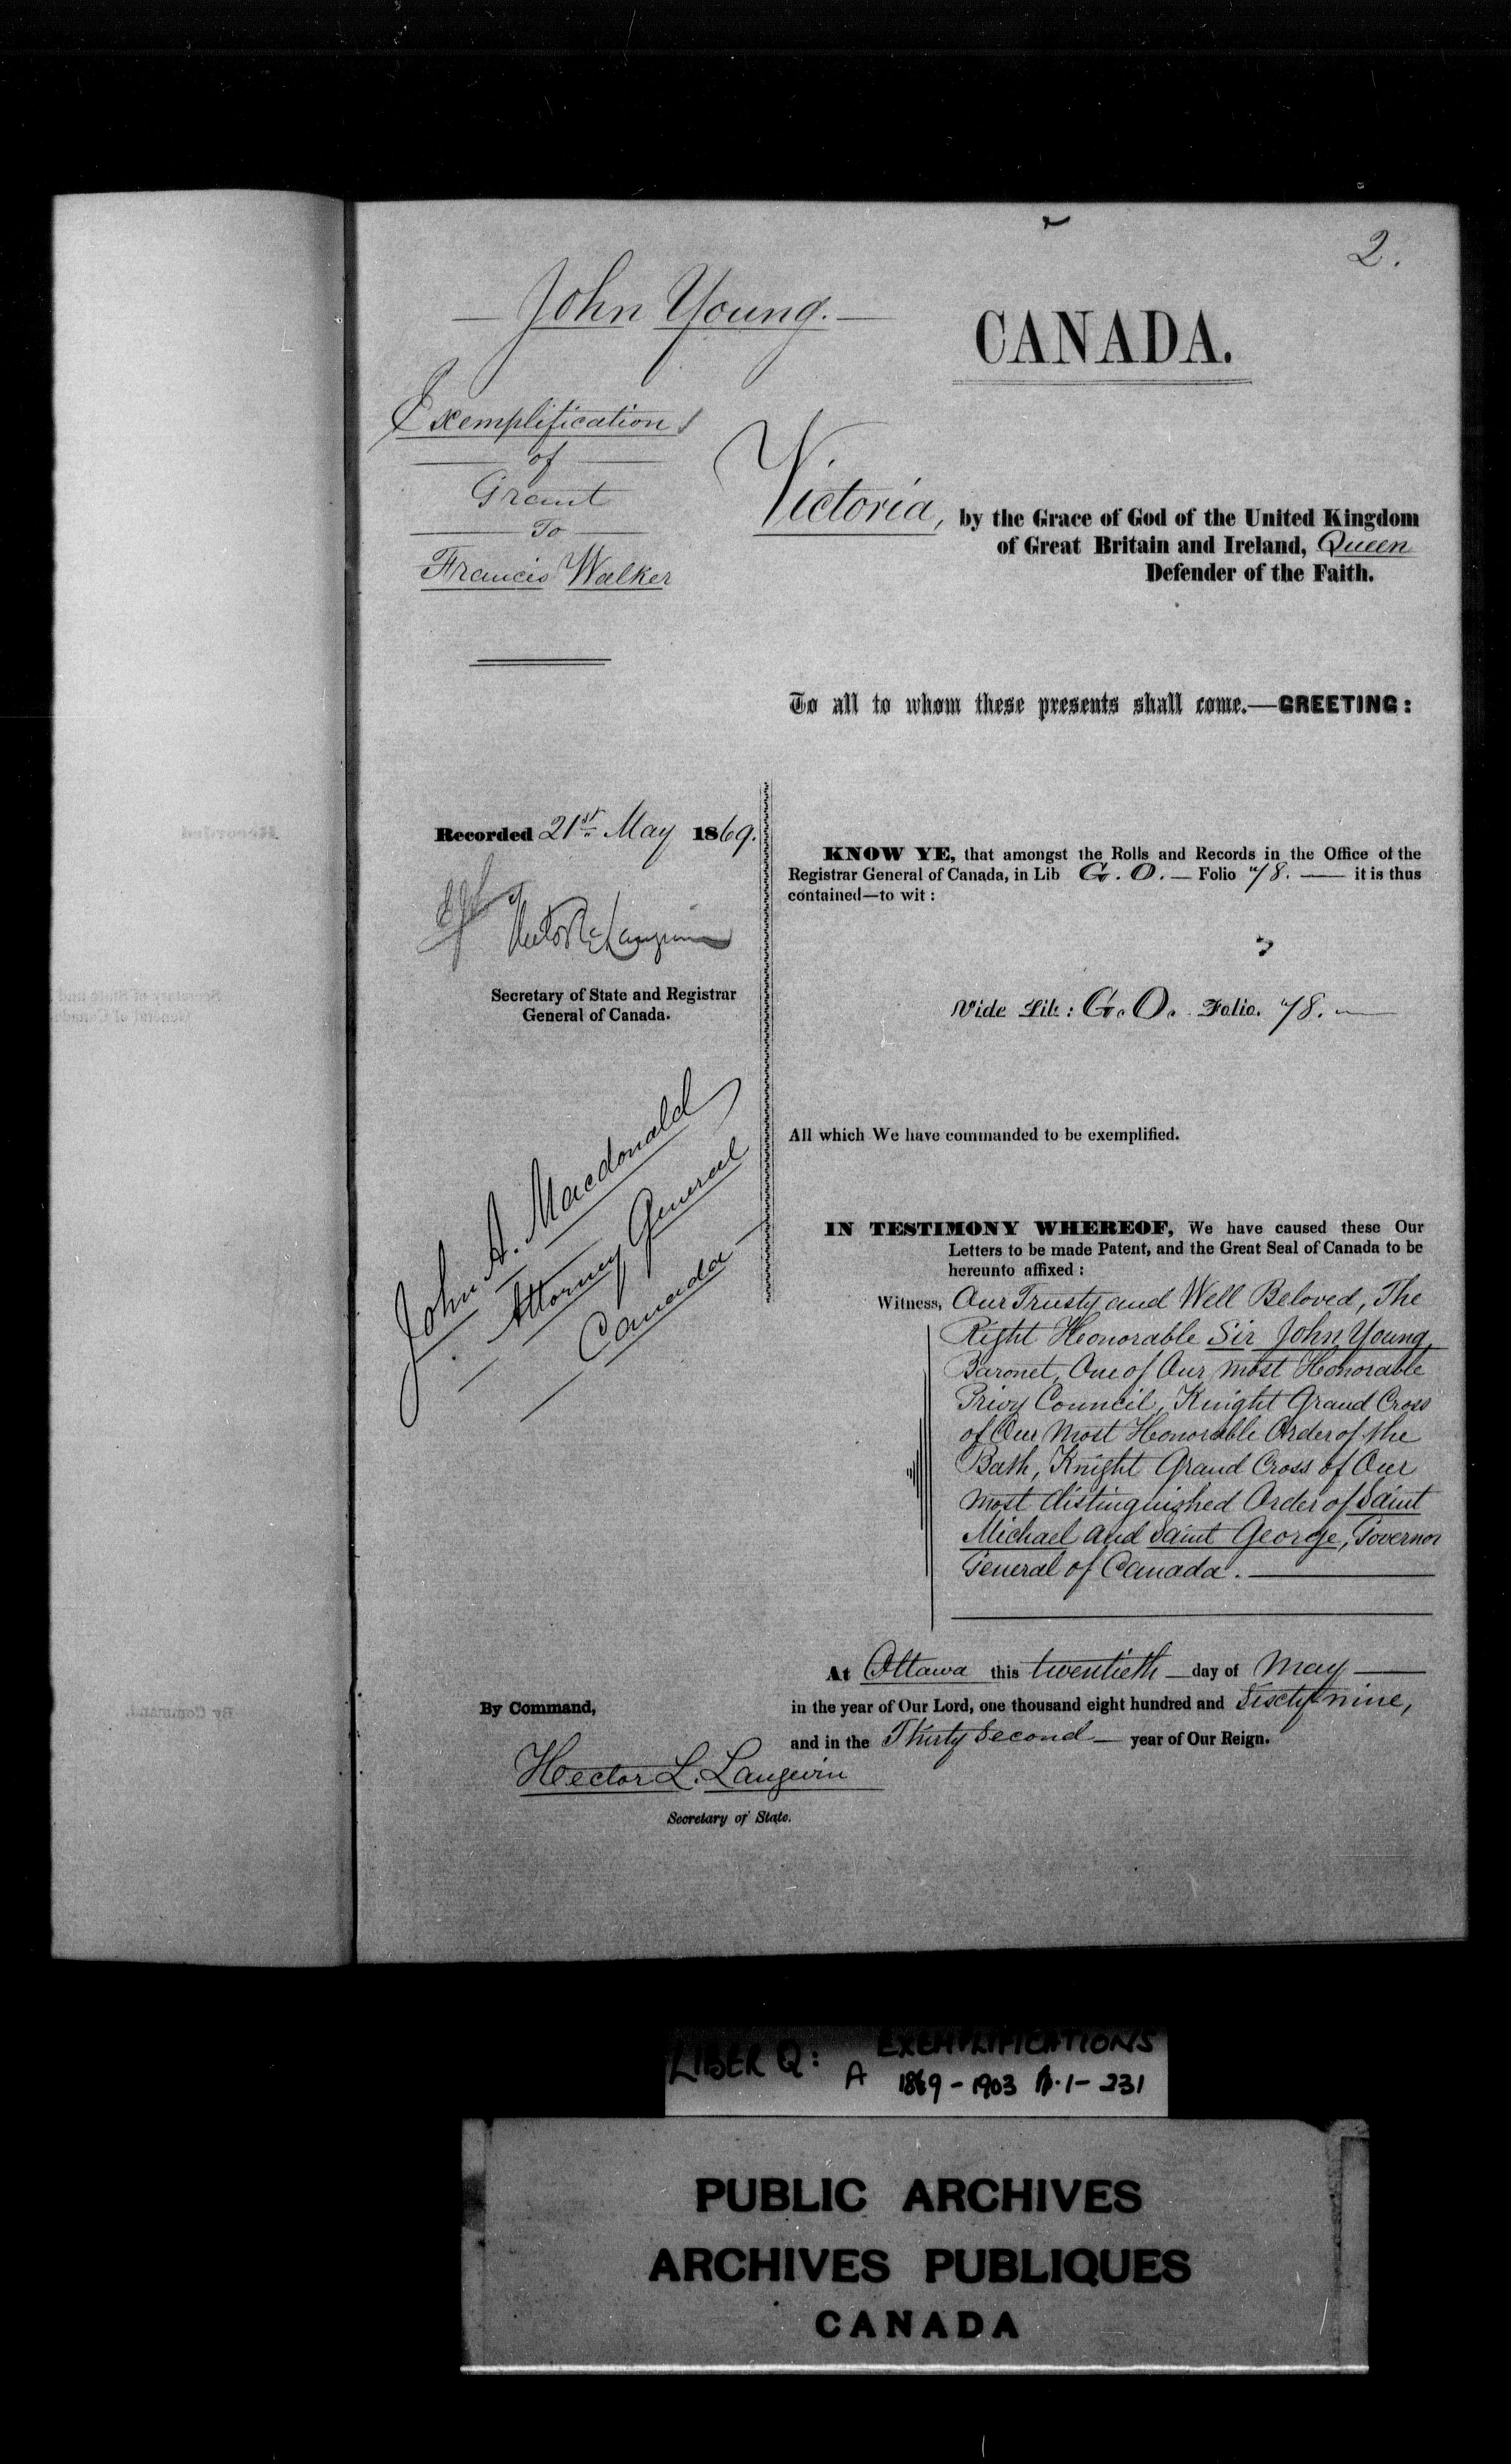 2.
John Young.
CANADA.
Exemplification
of
Grant
To
Francis Walker
Victoria, by the Grace of God of the United Kingdom
of Great Britain and Ireland, Queen
Defender of the Faith.
To all to whom these presents shall come.—GREETING:
Recorded 21st May 1869.
Secretary of State and Registrar
General of Canada.
John A. Macdonald
Attorney General
Canada
KNOW YE, that amongst the Rolls and Records in the Office of the
Registrar General of Canada, in Lib G. O. — Folio 78. — it is thus
contained—to wit:
Vide Lib: G. O. Folio. 78. —
All which We have commanded to be exemplified.
IN TESTIMONY WHEREOF, We have caused these Our
Letters to be made Patent, and the Great Seal of Canada to be
hereunto affixed:
Witness, Our Trusty and Well Beloved, The
Right Honorable Sir John Young,
Baronet, One of Our most Honorable
Privy Council, Knight Grand Cross
of Our Most Honorable Order of the
Bath, Knight Grand Cross of Our
most distinguished Order of Saint
Michael and Saint George, Governor
General of Canada.
At Ottawa this twentieth day of May
in the year of Our Lord, one thousand eight hundred and Sixty nine,
and in the Thirty Second year of Our Reign.
By Command,
Hector L. Langevin
Secretary of State.
LIBER Q: EXEMPLIFICATIONS
A 1869-1903 p. 1-231
PUBLIC ARCHIVES
ARCHIVES PUBLIQUES
CANADA